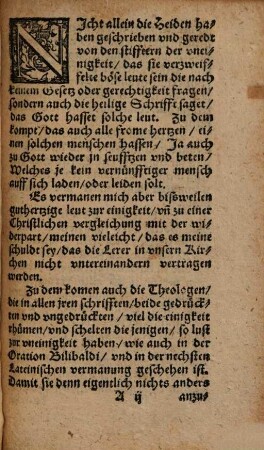 NIcht allein die Heiden ha-
ben geschrieben vnd geredt
von den stifftern der vnei-
nigkeit / das sie verzweif-
felte böse leute sein die nach
keinem Gesetz oder gerechtigkeit fragen /
sondern auch die heilige Schrifft saget /
das Gott hasset solche leut. Zu dem
kompt / das auch alle frome hertzen / ei-
nen solchen menschen hassen / Ja auch
zu Gott wieder jn seufftzen vnd beten /
Welches je kein vernünfftiger mensch
auff sich laden / oder leiden solt.
Es vermanen mich aber bißweilen
guthertzige leut zur einigkeit / vñ zu einer
Christlichen vergleichung mit der wi-
derpart / meinen vieleicht / das es meine
schuldt sey / das die Lerer in vnsern Kir-
chen nicht vntereinandern vertragen
werden.
Zu dem komen auch die Theologen /
die in allen jren schrifften / beide gedrück-
ten vnd vngedrückten / viel die einigkeit
rhümen / vnd schelten die jenigen / so lust
zur vneinigkeit haben / wie auch in der
Oration Bilibaldi / vnd in der nechsten
Lateinischen vermanung geschehen ist.
Damit sie denn eigentlich nichts anders
A ij anzu-